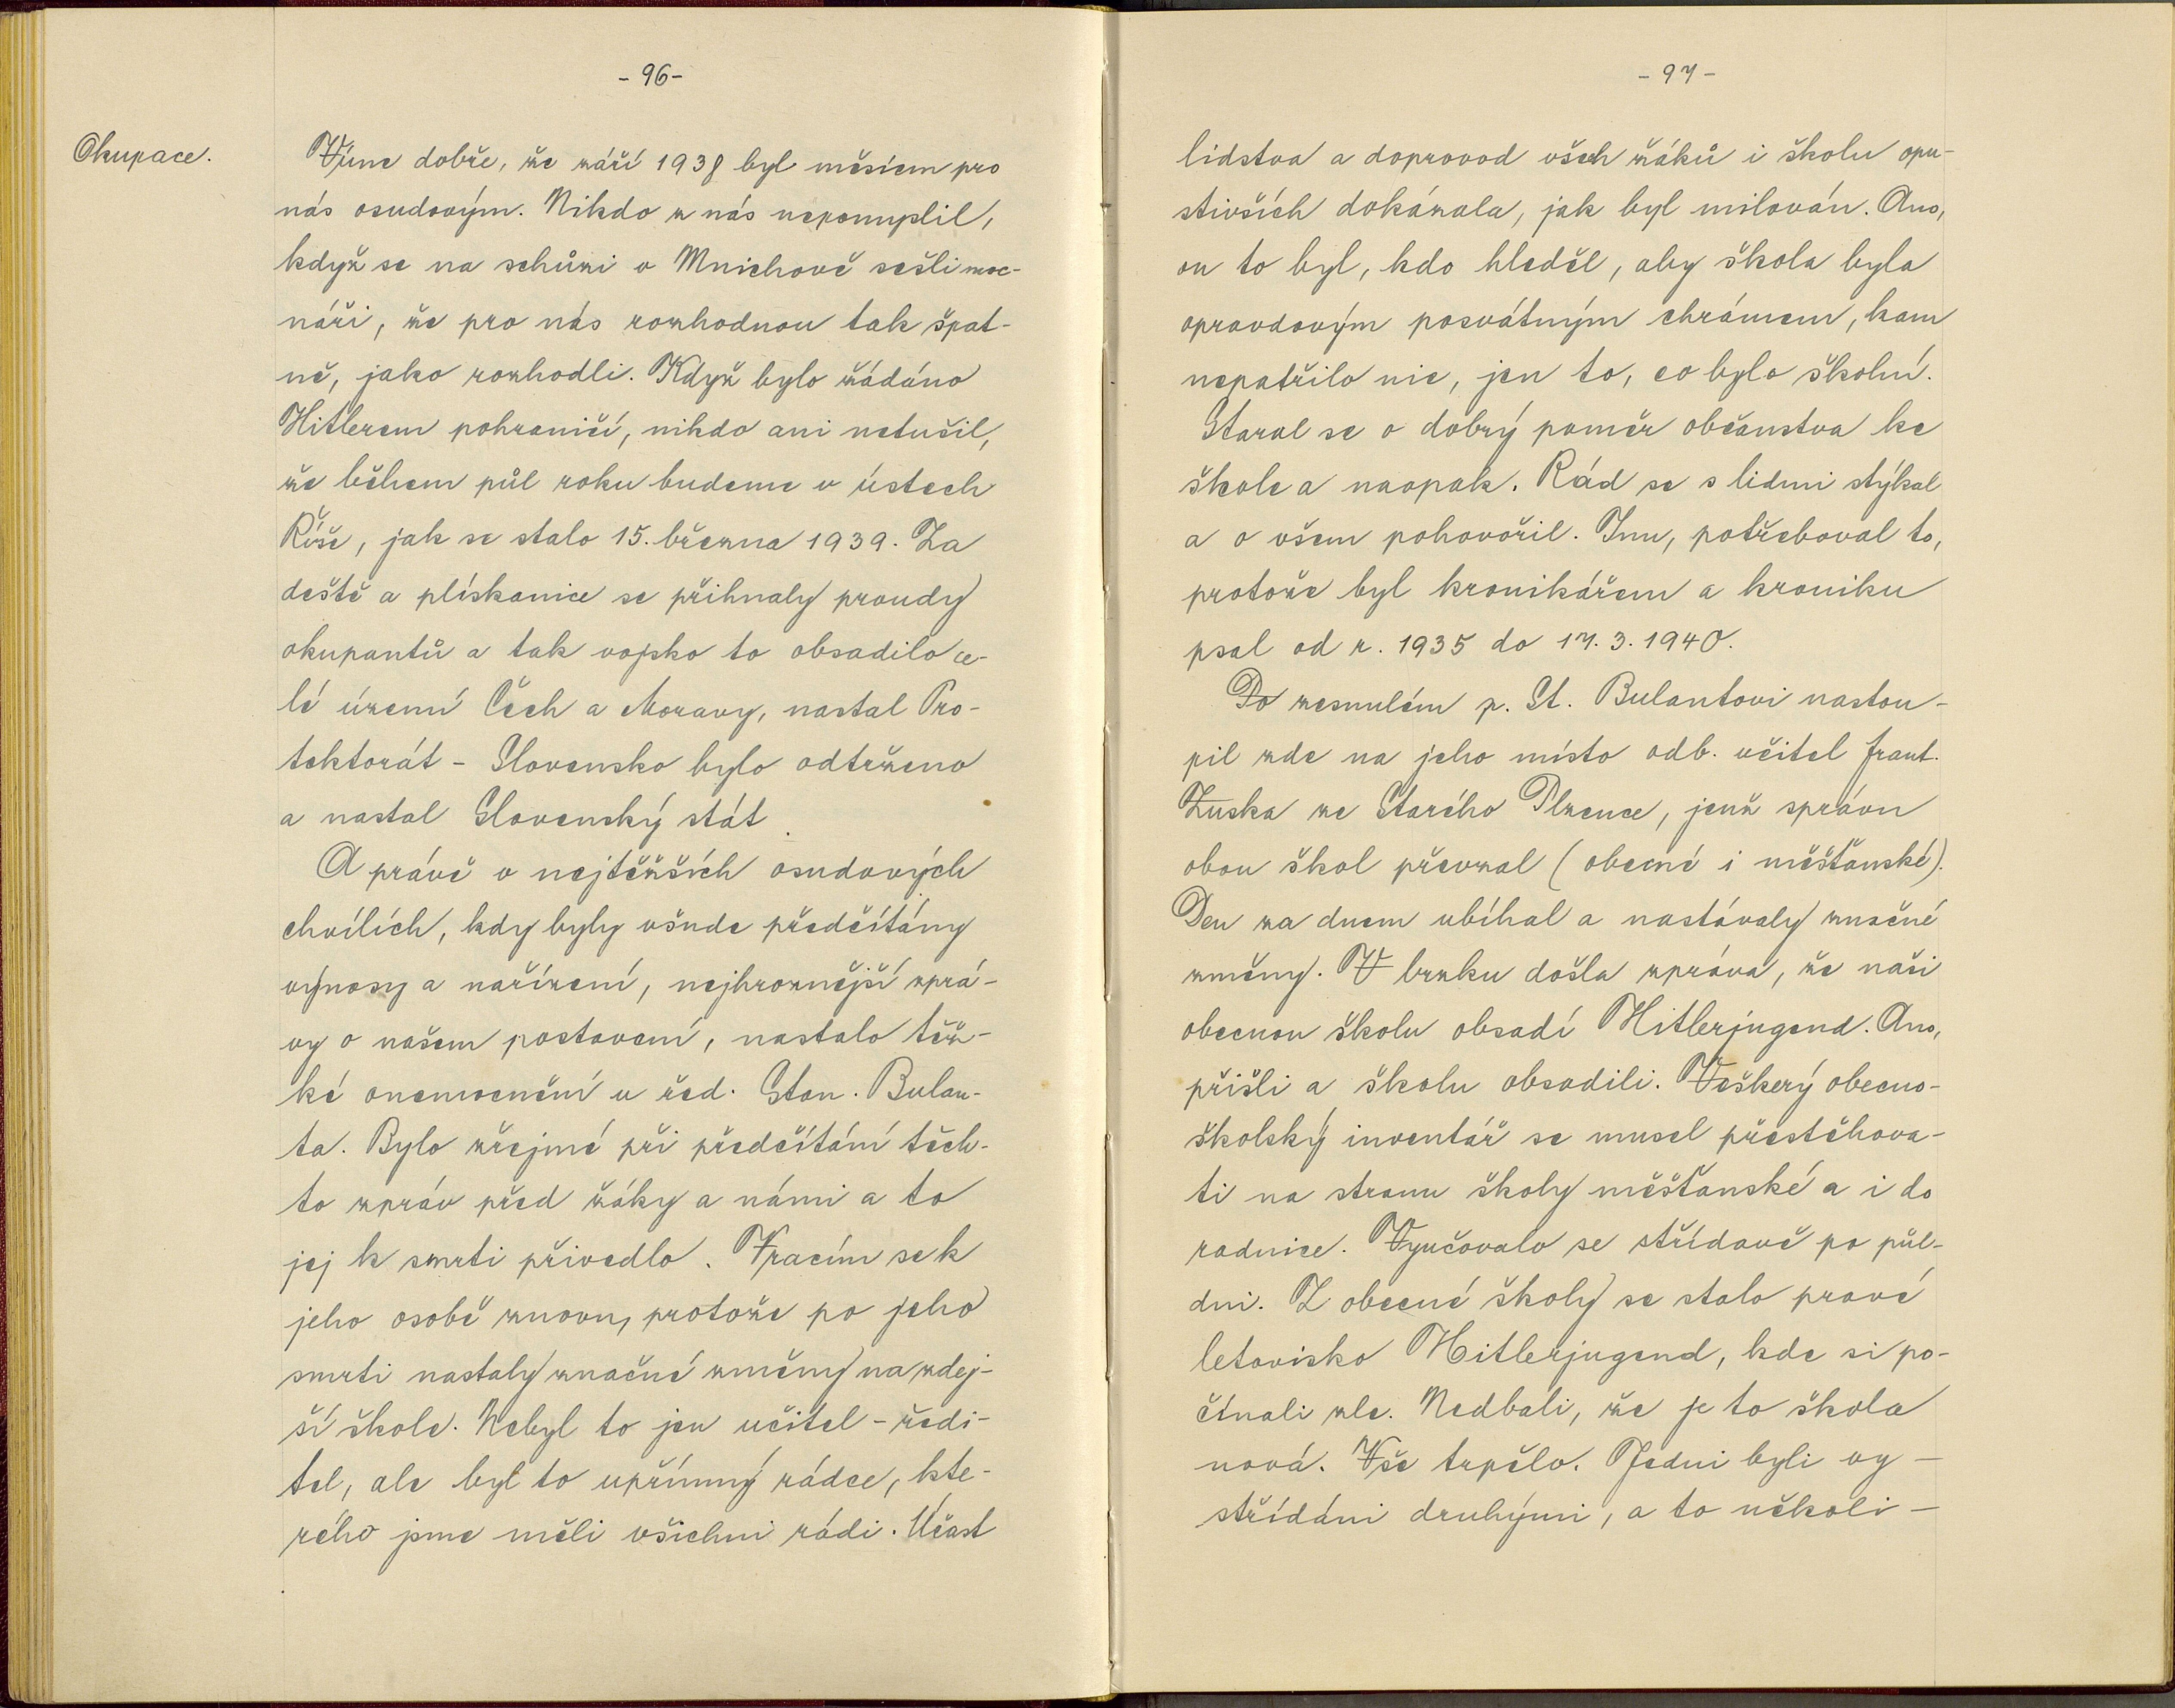 - 96 -
Okupace.
Víme dobře, že září 1938 byl měsícem pro
nás osudovým. Nikdo z nás nepomyslil,
když se na schůzi v Mnichově sešli moc-
náři, že pro nás rozhodnou tak špat-
ně, jako rozhodli. Když bylo žádáno
Hitlerem pohraničí, nikdo ani netušil,
že během půl roku budeme v ústech
Říše, jak se stalo 15. března 1939. Za
deště a plískanice se přihnaly proudy
okupantů a tak vojsko to obsadilo ce-
lé území Čech a Moravy, nastal Pro-
tektorát - Slovensko bylo odtrženo
a nastal Slovenský stát.
A právě v nejtěžších osudových
chvílích, kdy byly všude předčítány
výnosy a nařízení, nejhroznější zprá-
vy o našem postavení, nastalo těž-
ké onemocnění u řed. Stan. Bulan-
ta. Bylo zřejmé při předčítání těch-
to zpráv před žáky a námi a to
jej k smrti přivedlo. Vracím se k
jeho osobě znovu, protože po jeho
smrti nastaly značné změny na zdej-
ší škole. Nebyl to jen učitel - ředi-
tel, ale byl to upřímný rádce, kte-
rého jsme měli všichni rádi. Účast
- 97 -
lidstva a doprovod všech žáků i školu opu-
stivších dokázala, jak byl milován. Ano,
on to byl, kdo hleděl, aby škola byla
opravdovým posvátným chrámem, kam
nepatřilo nic, jen to, co bylo školní.
Staral se o dobrý poměr občanstva ke
škole a naopak. Rád se s lidmi stýkal
a o všem pohovořil. Inu, potřeboval to,
protože byl kronikářem a kroniku
psal od r. 1935 do 17. 3. 1940.
Po zesnulém p. St. Bulantovi nastou-
pil zde na jeho místo odb. učitel Frant.
Zuska ze Starého Plzence, jenž správu
obou škol převzal (obecné i měšťanské).
Den za dnem ubíhal a nastávaly značné
změny. V brzku došla zpráva, že naši
obecnou školu obsadí Hitlerjugend. Ano,
přišli a školu obsadili. Veškerý obecno-
školský inventář se musel přestěhova-
ti na stranu školy měšťanské a i do
radnice. Vyučovalo se střídavě po půl-
dni. Z obecné školy se stalo pravé
letovisko Hitlerjugend, kde si po-
čínali zle. Nedbali, že je to škola
nová. Vše trpělo. Jedni byli vy-
střídáni druhými, a to několi-